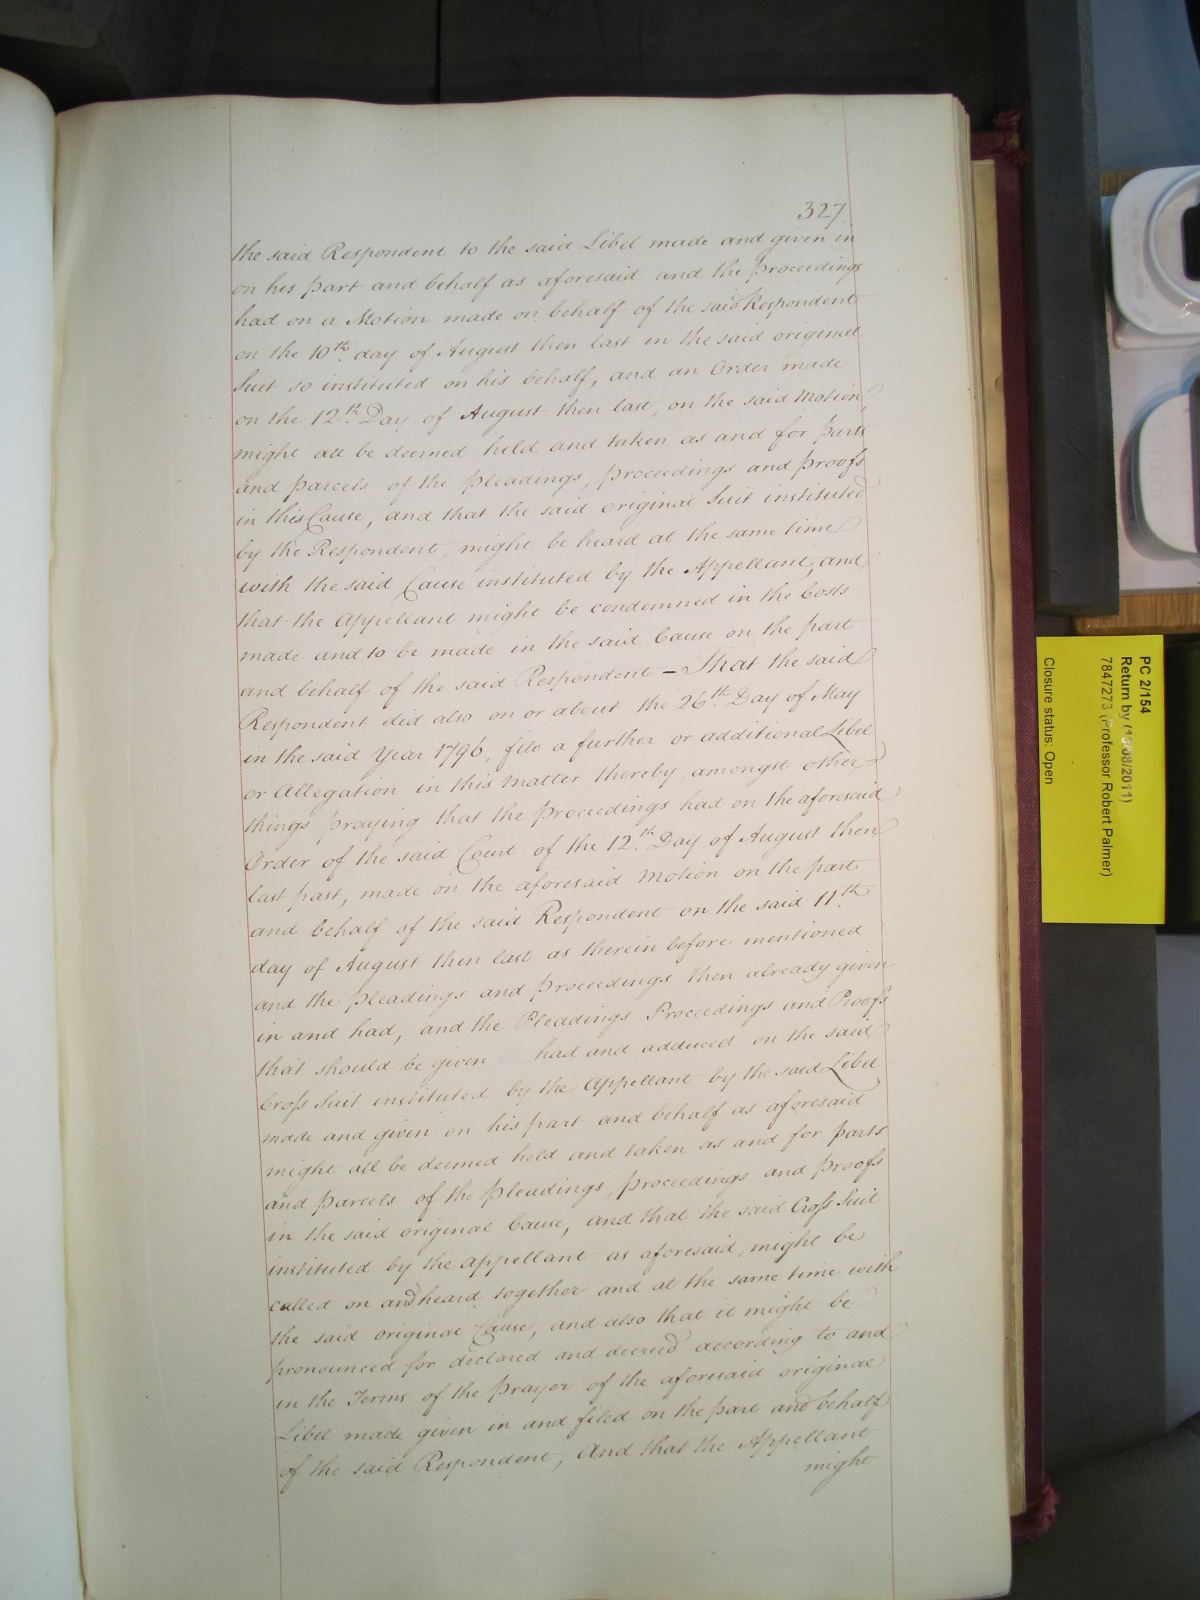 327
the said Respondent to the said Libel made and given in
on his part and behalf as aforesaid and the proceedings
had on a Motion made on behalf of the said Respondent
on the 10th. day of August then last in the said original
Suit so instituted on his behalf, and an Order made
on the 12th. Day of August then last, on the said Motion,
might all be deemed held and taken as and for parts
and parcels of the pleadings, proceedings and proofs
in this Cause, and that the said original Suit instituted
by the Respondent, might be heard at the same time
with the said Cause instituted by the Appellant, and
that the Appellant might be condemned in the Costs
made and to be made in the said Cause on the part
and behalf of the said Respondent – That the said
Respondent did also on or about the 26th. Day of May
in the said Year 1796, file a further or additional Libel
or Allegation in this Matter thereby, amongst other
things praying that the proceedings had on the aforesaid
Order of the said Court of the 12th. Day of August then
last past, made on the aforesaid Motion on the part
and behalf of the said Respondent on the said 11th.
day of August then last as therein before mentioned
and the pleadings and proceedings then already given
in and had, and the Pleadings Proceedings and Proofs
that should be given had and adduced on the said
Cross Suit instituted by the Appellant by the said Libel
made and given on his part and behalf as aforesaid
might all be deemed held and taken as and for parts
and parcels of the pleadings, proceedings and proofs
in the said original Cause, and that the said Cross Suit
instituted by the appellant as aforesaid, might be
called on and heard together and at the same time with
the said original Cause, and also that it might be
pronounced for declared and decreed according to and
in the Terms of the prayer of the aforesaid original
Libel made given in and filed on the part and behalf
of the said Respondent, And that the Appellant
might
PC 2/154
Return by (15/08/2011)
7847273 (Professor Robert Palmer)
Closure status: Open